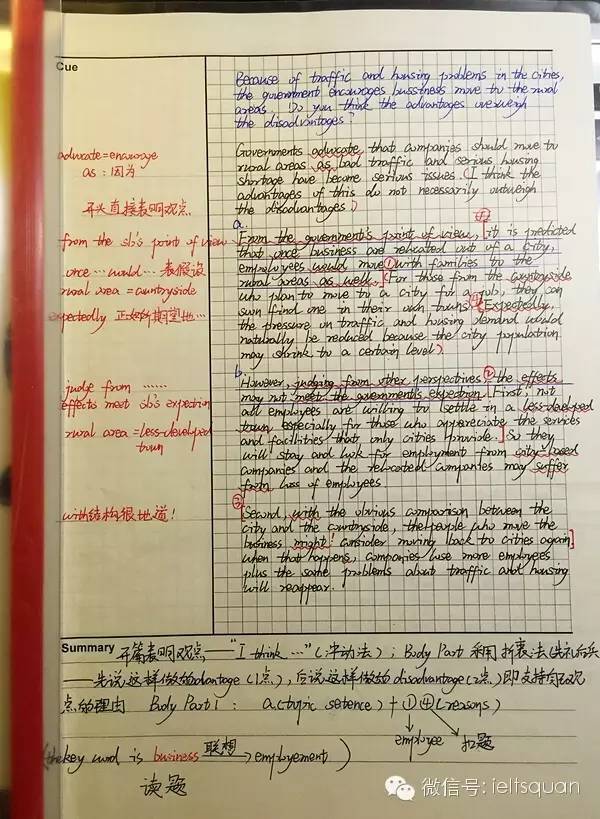 Cue
Because of traffic and housing problems in the cities,
the government encourages bussiness move to the rural
areas. Do you think the advantages overweigh
the disadvantages?
advocate=encourage
as:因为
开头直接表明观点
from the sb's point of view
once…would…表假设
rural area=countryside
expectedly 正如所期望地…
judge from ……
effects meet sb's expection
rural area=less-developed
town
with结构很地道!
Governments advocate that companies should move to
rural areas as bad traffic and serious housing
shortage have become serious issues. (I think the
advantages of this do not necessarily outweigh
the disadvantages.)
a.
From the government's point of view, it is predicted
that once business are relocated out of a city,
employees would move ① with families to the
rural areas as well. For those from the countryside
who plan to move to a city for a job, they can
find one in their own towns. ④ Expectedly,
the pressure on traffic and housing demand would
naturally be reduced because the city population
may shrink to a certain level.
b.
However, judging from other perspectives, the effects
may not meet the government's expection. First, not
all employees are willing to settle in a less-developed
town especially for those who appreciate the services
and facilities that only cities provide. So they
will stay and look for employment from city-based
companies and the relocated companies may suffer
from loss of employees.
Second, with the obvious comparison between the
city and the countryside, the people who move the
business might! consider moving back to cities again
when that happens, companies lose more employees
plus the same problems about traffic and housing
will reappear.
Summary 开篇表明观点——"I think…"(冲动法); Body Part 利用折衷法(先礼后兵
——先说这样做的advantage(1点), 后说这样做的disadvantage(2点)即支持自己观
点的理由 Body Part 1: a.(topic setence)+①④(reasons)
employee 扣题
(the key word is business 联想 employement)
读题
微信号: ieltsquan